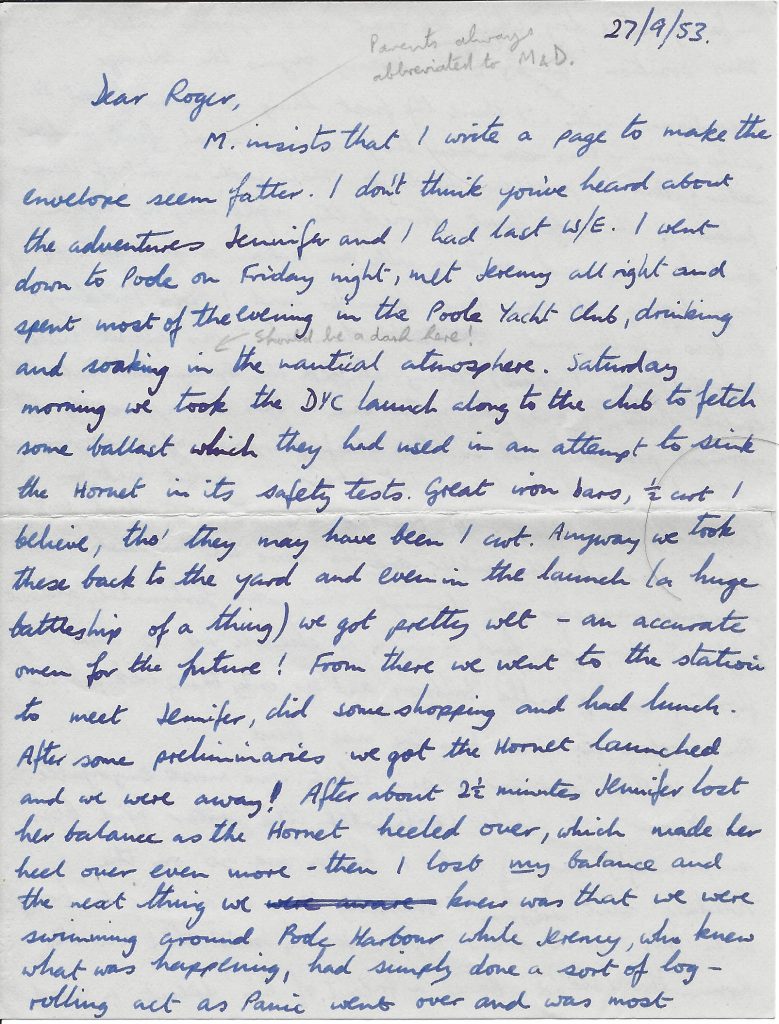 27/9/53.
Parents always
abbreviated to M & D.
Dear Roger,
M. insists that I write a page to make the
envelope seem fatter. I don't think you've heard about
the adventures Jennifer and I had last W/E. I went
down to Poole on Friday night, met Jeremy all right and
spent most of the evening in the Poole Yacht Club, drinking
should be a dash here!
and soaking in the nautical atmosphere. Saturday
morning we took the DYC launch along to the club to fetch
some ballast which they had used in an attempt to sink
the Hornet in its safety tests. Great iron bars, ½ cwt I
believe, tho' they may have been 1 cwt. Anyway we took
these back to the yard and even in the launch (a huge
battleship of a thing) we got pretty wet – an accurate
omen for the future! From there we went to the station
to meet Jennifer, did some shopping and had lunch.
After some preliminaries we got the Hornet launched
and we were away! After about 2½ minutes Jennifer lost
her balance as the Hornet heeled over, which made her
heel over even more – then I lost my balance and
the next thing we were aware knew was that we were
swimming around Poole Harbour while Jeremy, who knew
what was happening, had simply done a sort of log-
rolling act as Panic went over and was most